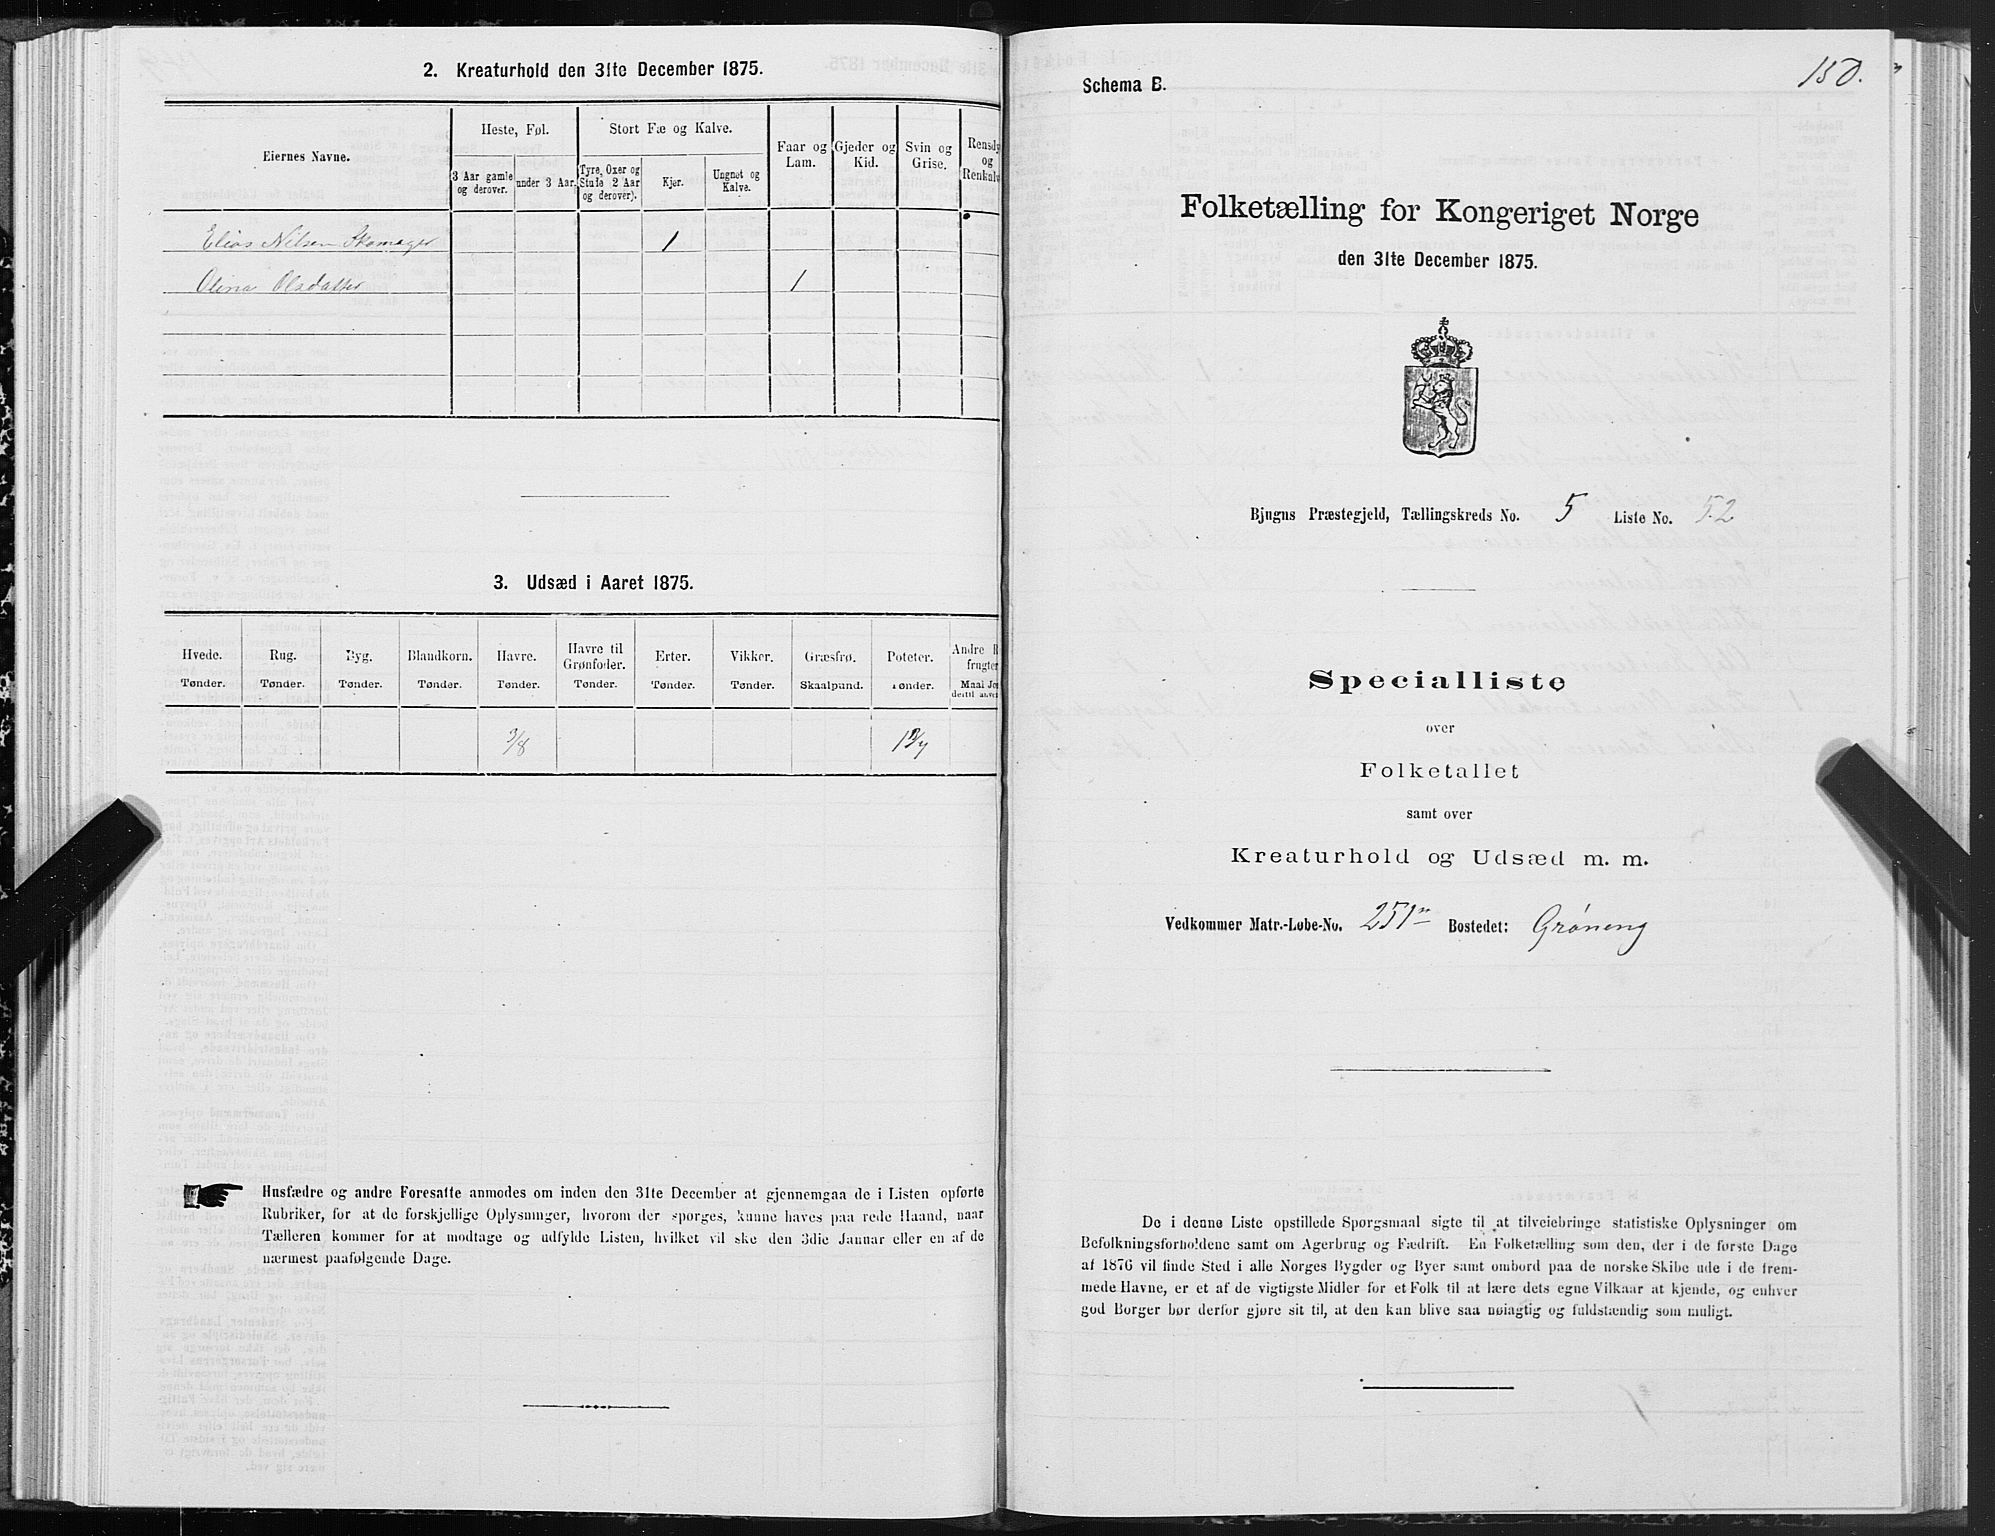 2. Kreaturhold den 31te December 1875.
Eiernes Navne.
Heste, Føl.
Stort Fæ og Kalve.
Faar og Lam.
Gjeder og Kid.
Svin og Grise.
Rensdy og Renkalve
3 Aar gamle og derover.
under 3 Aar.
Tyre, Oxer og Stude 2 Aar og derover).
Kjør.
Ungnøt og Kalve.
Elias Nilsen Skomager 1
Olina Olsdatter 1
3. Udsæd i Aaret 1875.
Hvede. Rug. Byg. Blandkorn. Havre. Havre til Grønfoder. Erter. Vikker. Græsfrø. Poteter. Andre R frugter
Tønder. Tønder. Tønder. Tønder. Tønder. Tønder. Tønder. Tønder. Skaalpund. Tønder. Maal Jo dertil anve
3/8
Husfædre og andre Foresatte anmodes om inden den 31te December at gjennemgaa de i Listen opførte
Rubriker, for at de forskjellige Oplysninger, hvorom der spørges, kunne haves paa rede Haand, naar
Tælleren kommer for at modtage og udfylde Listen, hvilket vil ske den 3die Januar eller en af de
nærmest paafølgende Dage.
Schema B.
150.
Folketælling for Kongeriget Norge
den 31te December 1875.
Bjugns Præstegjeld, Tællingskreds No. 5 Liste No. 52
Specialliste
over
Folketallet
samt over
Kreaturhold og Udsæd m. m.
Vedkommer Matr.-Løbe-No. 251 Bostedet: Grøneng
De i denne Liste opstillede Spørgsmaal sigte til at tilveiebringe statistiske Oplysninger om
Befolkningsforholdene samt om Agerbrug og Fædrift. En Folketælling som den, der i de første Dage
af 1876 vil finde Sted i alle Norges Bygder og Byer samt ombord paa de norske Skibe ude i de frem-
mede Havne, er et af de vigtigste Midler for et Folk til at lære dets egne Vilkaar at kjende, og enhver
god Borger bør derfor gjøre sit til, at den kan blive saa nøiagtig og fuldstændig som muligt.